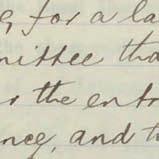 for a la
mittee tha
r the entr
nce, and t